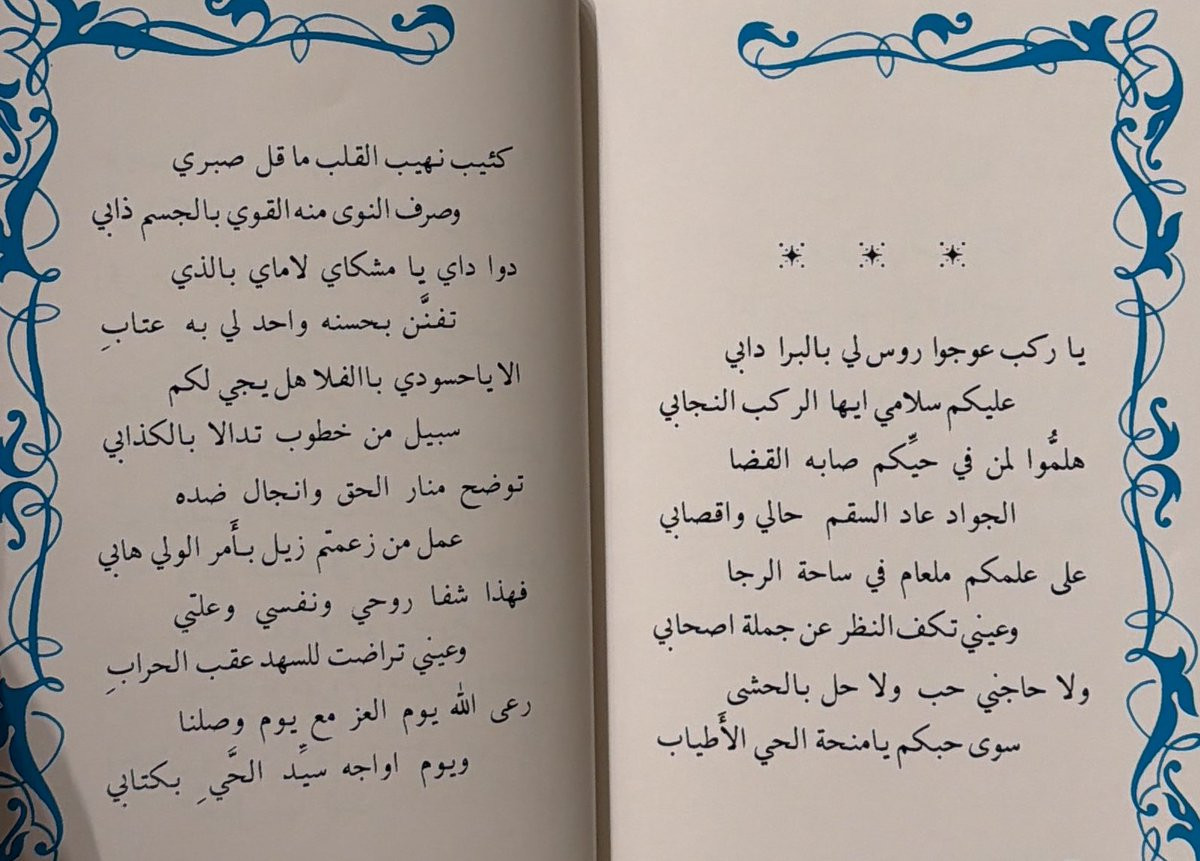 يا ركب عوجوا روس لي بالبرا دابي
عليكم سلامي ايها الركب النجابي
هلمُّوا لمن في حيِّكم صابه القضا
الجواد عاد السقم حالي واقصابي
على علمكم ملعام في ساحة الرجا
وعيني تكف النظر عن جملة اصحابي
ولا حاجني حب ولا حل بالحشى
سوى حبكم يامنحة الحي الأَطياب
كئيب نهيب القلب ما قل صبري
وصرف النوى منه القوي بالجسم ذابي
دوا داي يا مشكاي لاماي بالذي
تفنَّن بحسنه واحد لي به عتابِ
الا ياحسودي باالفلا هل يجي لكم
سبيل من خطوب تدالا بالكذابي
توضح منار الحق وانجال ضده
عمل من زعمتم زيل بأَمر الولي هابي
فهذا شفا روحي ونفسي وعلتي
وعيني تراضت للسهد عقب الحرابِ
رعى الله يوم العز مع يوم وصلنا
ويوم اواجه سيِّد الحَّيِ بكتابي